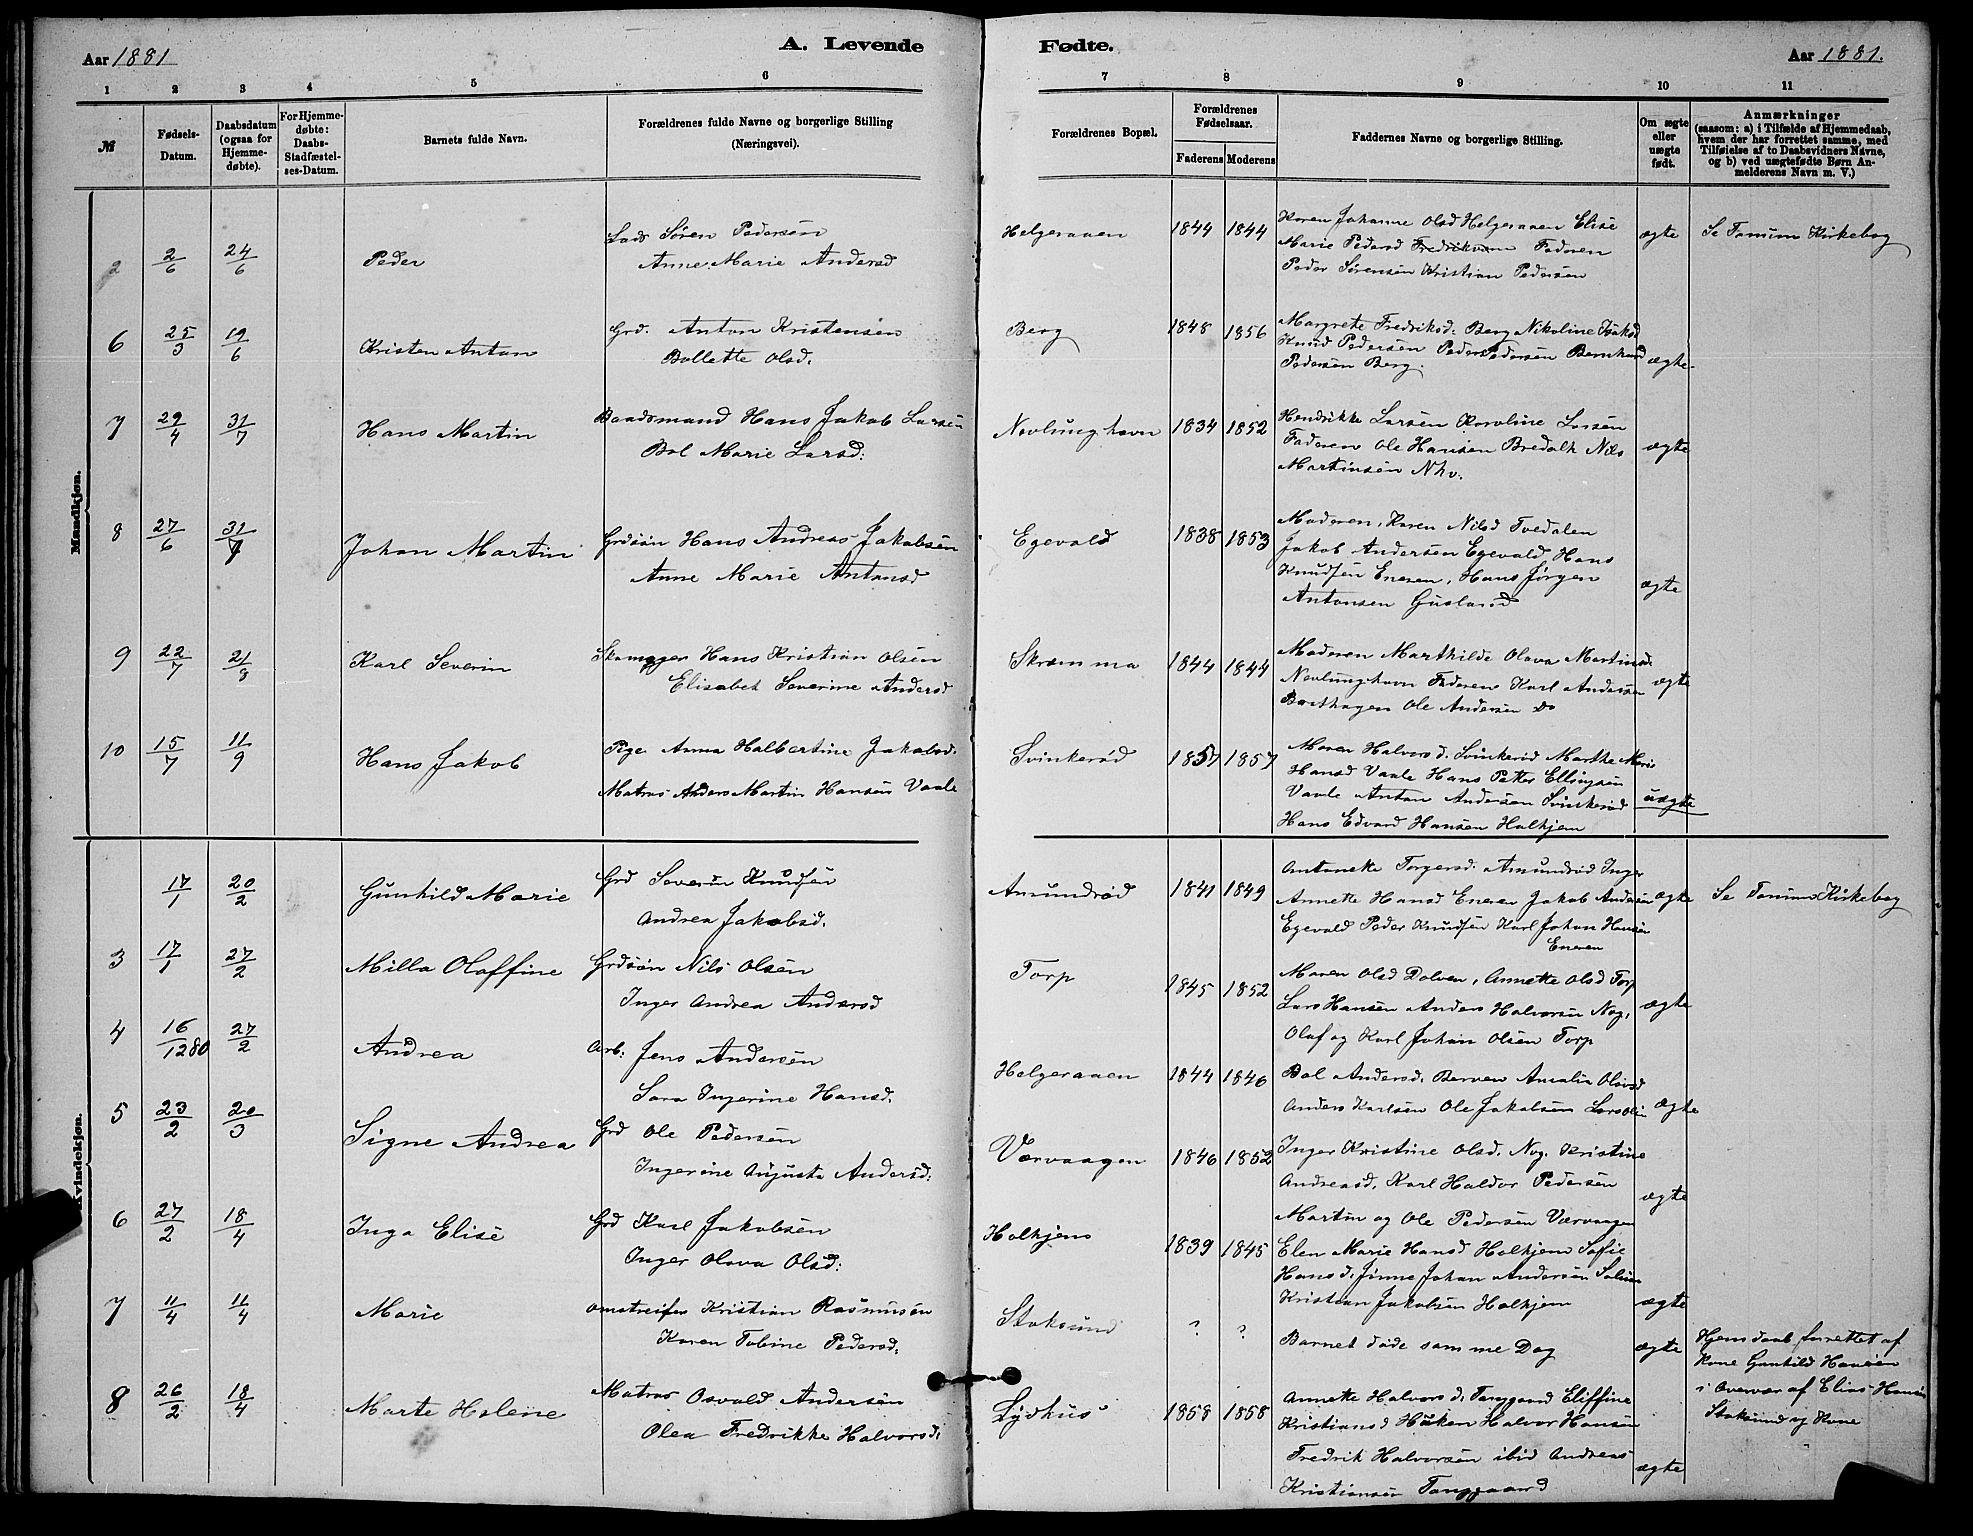 Aar 1881
A. Levende
Fødte.
Aar 1881.
1 2 3 4 5 6 7 8 9 10 11
№
Fødsels-
Datum.
Daabsdatum
(ogsaa for
Hjemme-
døbte).
For Hjemme-
døbte:
Daabs-
Stadfæstel-
ses-Datum.
Barnets fulde Navn.
Forældrenes fulde Navne og borgerlige Stilling
(Næringsvei).
Forældrenes Bopæl.
Forældrenes
Fødselsaar.
Faderens Moderens
Faddernes Navne og borgerlige Stilling.
Om ægte
eller
uægte
født.
Anmærkninger
(saasom: a) i Tilfælde af Hjemmedaab,
hvem der har forrettet samme, med
Tilføielse af to Daabsvidners Navne,
og b) ved uægtefødte Børn An-
melderens Navn m. V.)
Mandkjøn.
2 2/6 24/6 Peder
Lods Søren Pedersen
Anne Marie Andersd
Helgeraaen 1844 1844
Karen Johanne Olsd Helgeraaen Elise
Marie Pedersd Fredriksvern Faderen
Peder Sørensen Kristian Pedersen
ægte
Se Tanum Kirkebog
6 25/3 19/6 Kristen Anton
Grd. Anton Kristensen
Bollette Olsd.
Berg 1848 1856
Margrete Fredriksd. Berg Nikoline Isaksd
Knud Pedersen Peder Pedersen Bernhard
Pedersen Berg.
ægte
7 29/4 31/7 Hans Martin
Baadsmand Hans Jakob Larsen
Bol Marie Larsd:
Nevlunghavn 1834 1852
Hendrikke Larsen Karoline Larsen
Faderen Ole Hansen Bredalk Nils
Martinsen Nhv.
ægte
8 27/6 31/7 Johan Martin
Grdsøn Hans Andreas Jakobsen
Anne Marie Antonsd
Egevald 1838 1853
Moderen, Karen Nilsd Tvedalen
Jakob Andersen Egevald Hans
Knudsen Eneren, Hans Jørgen
Antonsen Gusland
ægte
9 22/7 21/8 Karl Severin
Hans Kristian Olsen
Elisabet Severine Andersd
Skramma 1844 1844
Moderen Marthilde Olava Martinsd.
Nevlunghavn Faderen Karl Andersen
Barthagen Ole Andersen Do
ægte
10 15/7 11/9 Hans Jakob
Pige Anna Halbertine Jakobsd.
Matros Anders Martin Hansen Vaale
Svinkerød 1857 1857
Maren Halvorsd. Svinkerød Marthe Marie
Hansd Vaale Hans Petter Ellingsen
Vaale Anton Andersen Svinkerød
Hans Edvard Hansen Halkjem
uægte
Kvindekjøn.
17/1 20/2 Gunhild Marie
Grd Severin Knudsen
Andrea Jakobsd.
Amundrød 1841 1849
Antonette Torgersd. Amundrød Inger
Annette Hansd Eneren Jakob Andersen
Egevald Peder Knudsen Karl Johan Hansen
Eneren
ægte
Se Tanum Kirkebog
3 17/1 27/2 Milla Olaffine
Grdsøn Nils Olsen
Inger Andrea Andersd
Torp 1845 1852
Maren Olsd Dolven, Annette Olsd Torp
Lars Hansen Anders Halvorsen Nog,
Olaf og Karl Johan Olsen Torp
ægte
4 16/12 80 27/2 Andrea
Arb: Jens Andersen
Sara Ingerine Hansd.
Helgeraaen 1844 1846
Bol Andersd. Berven Amalia Olavsd
Anders Karlsen Ole Jakobsen Lars Olsen
ægte
5 23/2 20/3 Signe Andrea
Grd Ole Pedersen
Ingerine Augusta Andersd:
Værvaagen 1846 1852
Inger Kristine Olsd. Nog. Kristine
Andreasd. Karl Haldor Pedersen
Martin og Ole Pedersen Værvaagen
ægte
6 27/2 18/4 Inga Elise
Grd Karl Jakobsen
Inger Olava Olsd:
Halkjem 1839 1845
Elen Marie Hansd Halkjem Sofie
Hansd. Jinne Johan Andersen
Kristian Jakobsen Halkjem
ægte
7 11/4 11/4 Marie
Omstreifer Kristian Rasmusen
Karen Tobine Pedersd.
Stoksund ? ?
Barnet døde samme Dag
ægte
Hjemdaab forrettet af
Kone Gunhild Hansen
i Overvær af Elias Hansen
Stoksund og Kone
8 26/2 18/4 Marte Helene
Matros Osvald Andersen
Olea Fredrikke Halvorsd.
Lydhus 1858 1858
Annette Halvorsd. Tanggaard Eliffine
Kristiansd Haaken Halvor Hansen
Fredrik Halvorsen ibid Andreas
Kristiansen Tanggaard
ægte